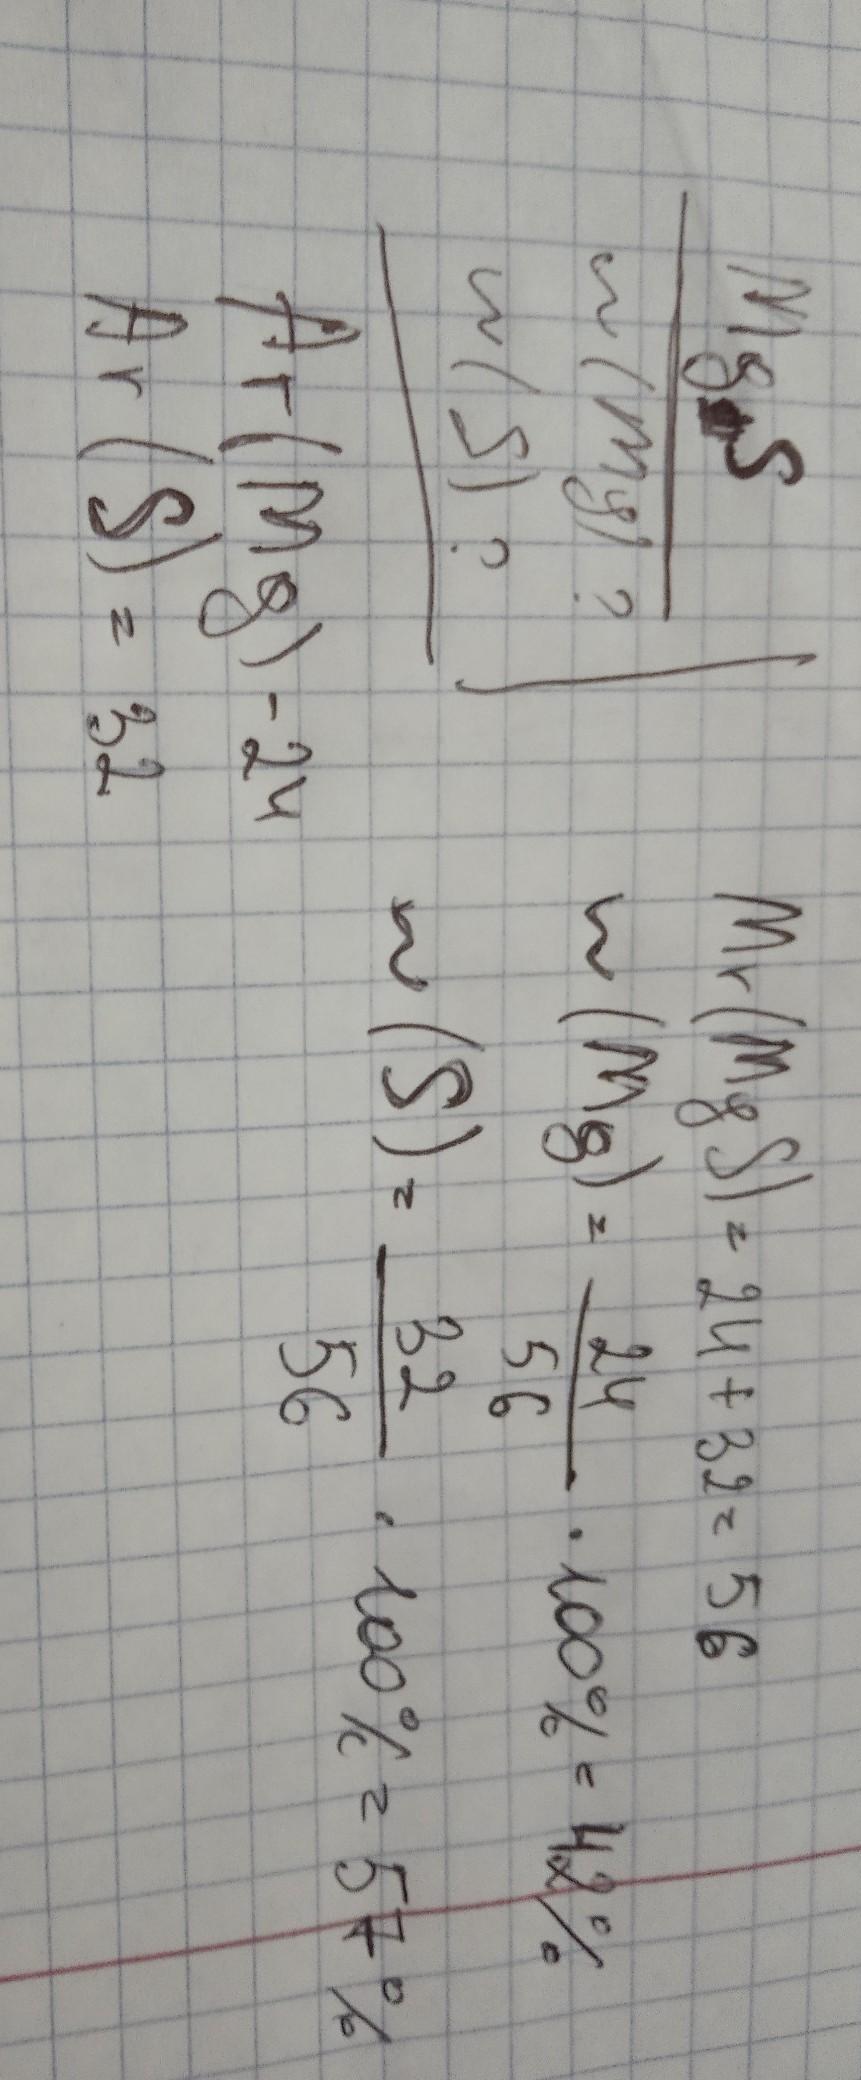 MgS
w(Mg)?
w(S)?
Ar(Mg)-24
Ar(S)=32
Mr(MgS)=24+32=56
w(Mg)=24/56·100%=42%
w(S)=32/56·100%=57%